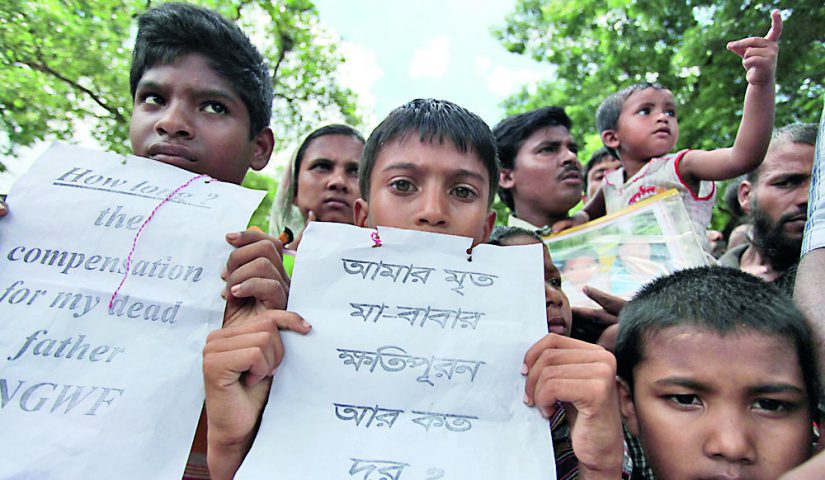 How long ?
the
compensation
for my dead
father
NGWF
আমার মৃত
মা-বাবার
ক্ষতিপূরন
আর কত
দূর ?